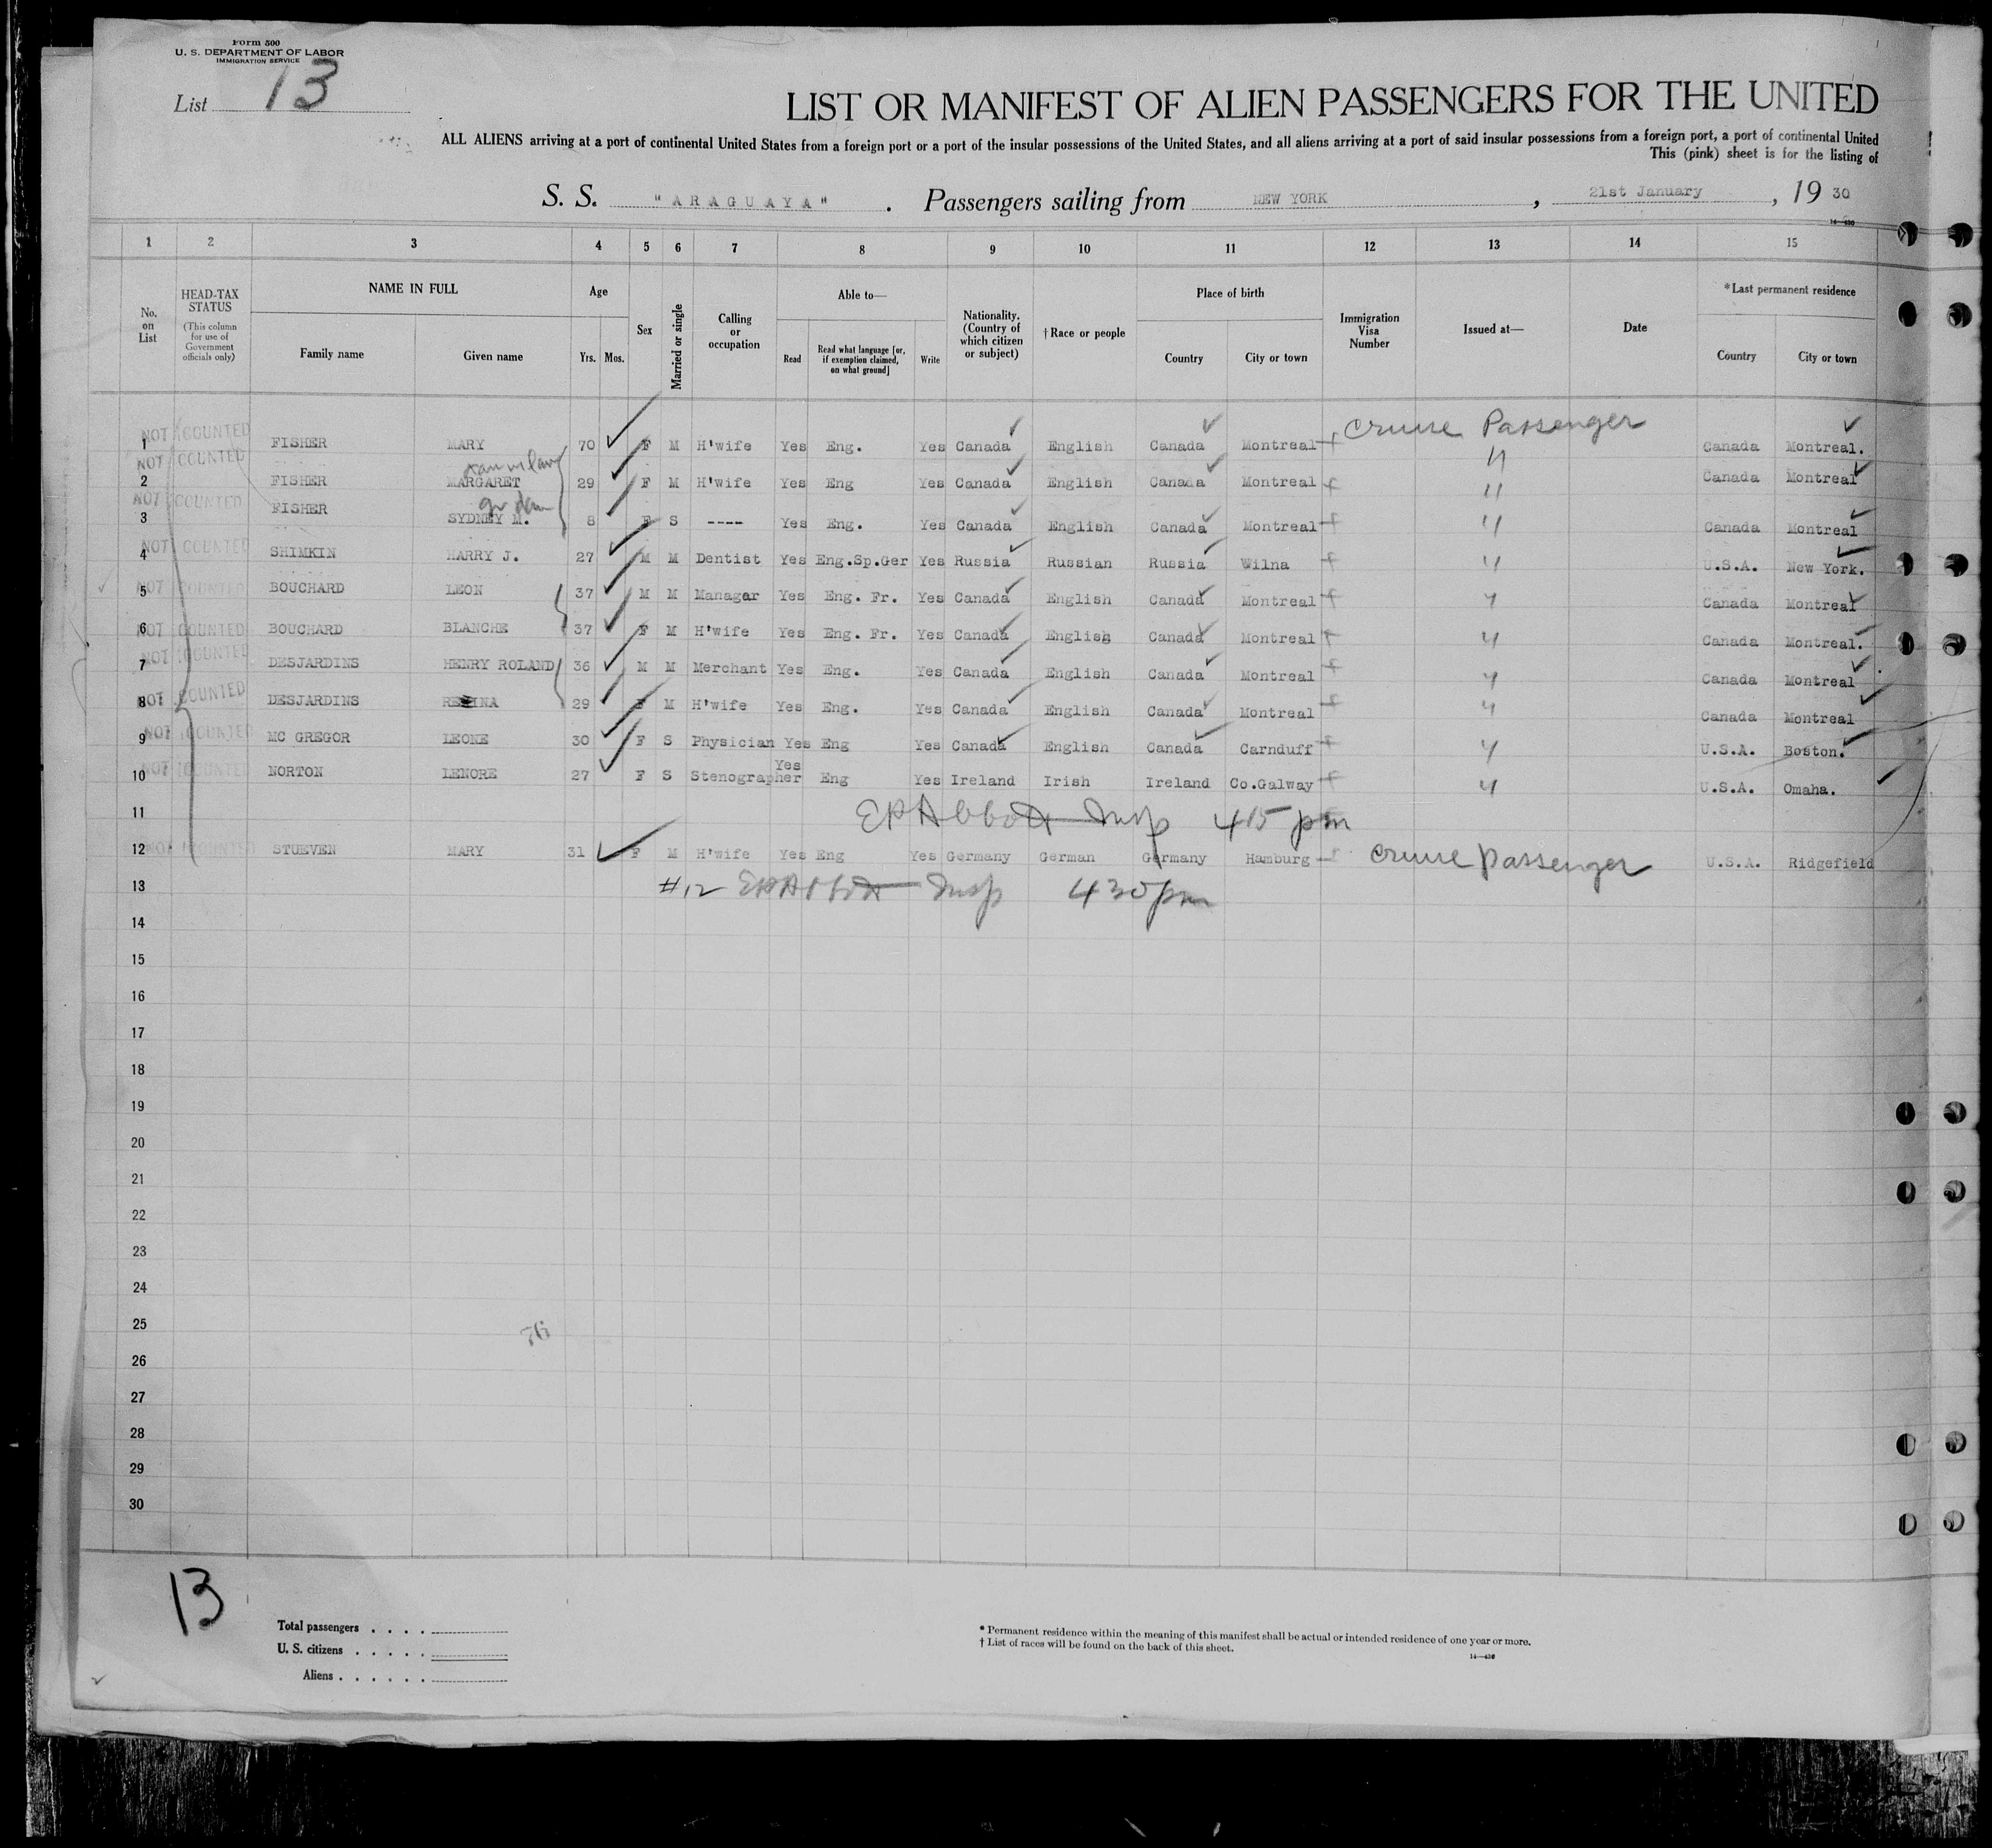 Form 500
U. S. DEPARTMENT OF LABOR
IMMIGRATION SERVICE
List 13
LIST OR MANIFEST OF ALIEN PASSENGERS FOR THE UNITED
ALL ALIENS arriving at a port of continental United States from a foreign port or a port of the insular possessions of the United States, and all aliens arriving at a port of said insular possessions from a foreign port, a port of continental United
This (pink) sheet is for the listing of
S. S. "ARAGUAYA" . Passengers sailing from NEW YORK , 21st January , 19 30
14—430
1 2 3 4 5 6 7 8 9 10 11 12 13 14 15
No. on List
HEAD-TAX STATUS (This column for use of Government officials only)
NAME IN FULL
Family name Given name
Age Yrs. Mos.
Sex
Married or single
Calling or occupation
Able to—
Read Read what language [or, if exemption claimed, on what ground] Write
Nationality. (Country of which citizen or subject)
†Race or people
Place of birth
Country City or town
Immigration Visa Number
Issued at—
Date
*Last permanent residence
Country City or town
1 NOT COUNTED FISHER MARY 70 F M H'wife Yes Eng. Yes Canada English Canada Montreal Cruise Passenger Canada Montreal.
2 NOT COUNTED FISHER MARGARET 29 F M H'wife Yes Eng Yes Canada English Canada Montreal " Canada Montreal
3 NOT COUNTED FISHER SYDNEY M. 8 F S ---- Yes Eng. Yes Canada English Canada Montreal " Canada Montreal
4 NOT COUNTED SHIMKIN HARRY J. 27 M M Dentist Yes Eng.Sp.Ger Yes Russia Russian Russia Wilna " U.S.A. New York.
5 NOT COUNTED BOUCHARD LEON 37 M M Manager Yes Eng. Fr. Yes Canada English Canada Montreal " Canada Montreal
6 NOT COUNTED BOUCHARD BLANCHE 37 F M H'wife Yes Eng. Fr. Yes Canada English Canada Montreal " Canada Montreal.
7 NOT COUNTED DESJARDINS HENRY ROLAND 36 M M Merchant Yes Eng. Yes Canada English Canada Montreal " Canada Montreal
8 NOT COUNTED DESJARDINS 29 F M H'wife Yes Eng. Yes Canada English Canada Montreal " Canada Montreal
9 NOT COUNTED MC GREGOR LEONE 30 F S Physician Yes Eng Yes Canada English Canada Carnduff " U.S.A. Boston.
10 NOT COUNTED NORTON LENORE 27 F S Stenographer Yes Eng Yes Ireland Irish Ireland Co.Galway " U.S.A. Omaha.
11 EPAbbott Insp 415 pm
12 NOT COUNTED STUEVEN MARY 31 F M H'wife Yes Eng Yes Germany German Germany Hamburg Cruise Passenger U.S.A. Ridgefield
13 #12 EPAbbott Insp 430 pm
14
15
16
17
18
19
20
21
22
23
24
25
76
26
27
28
29
30
13
Total passengers . . . .
U. S. citizens . . . . .
Aliens . . . . . .
* Permanent residence within the meaning of this manifest shall be actual or intended residence of one year or more.
† List of races will be found on the back of this sheet.
14—430